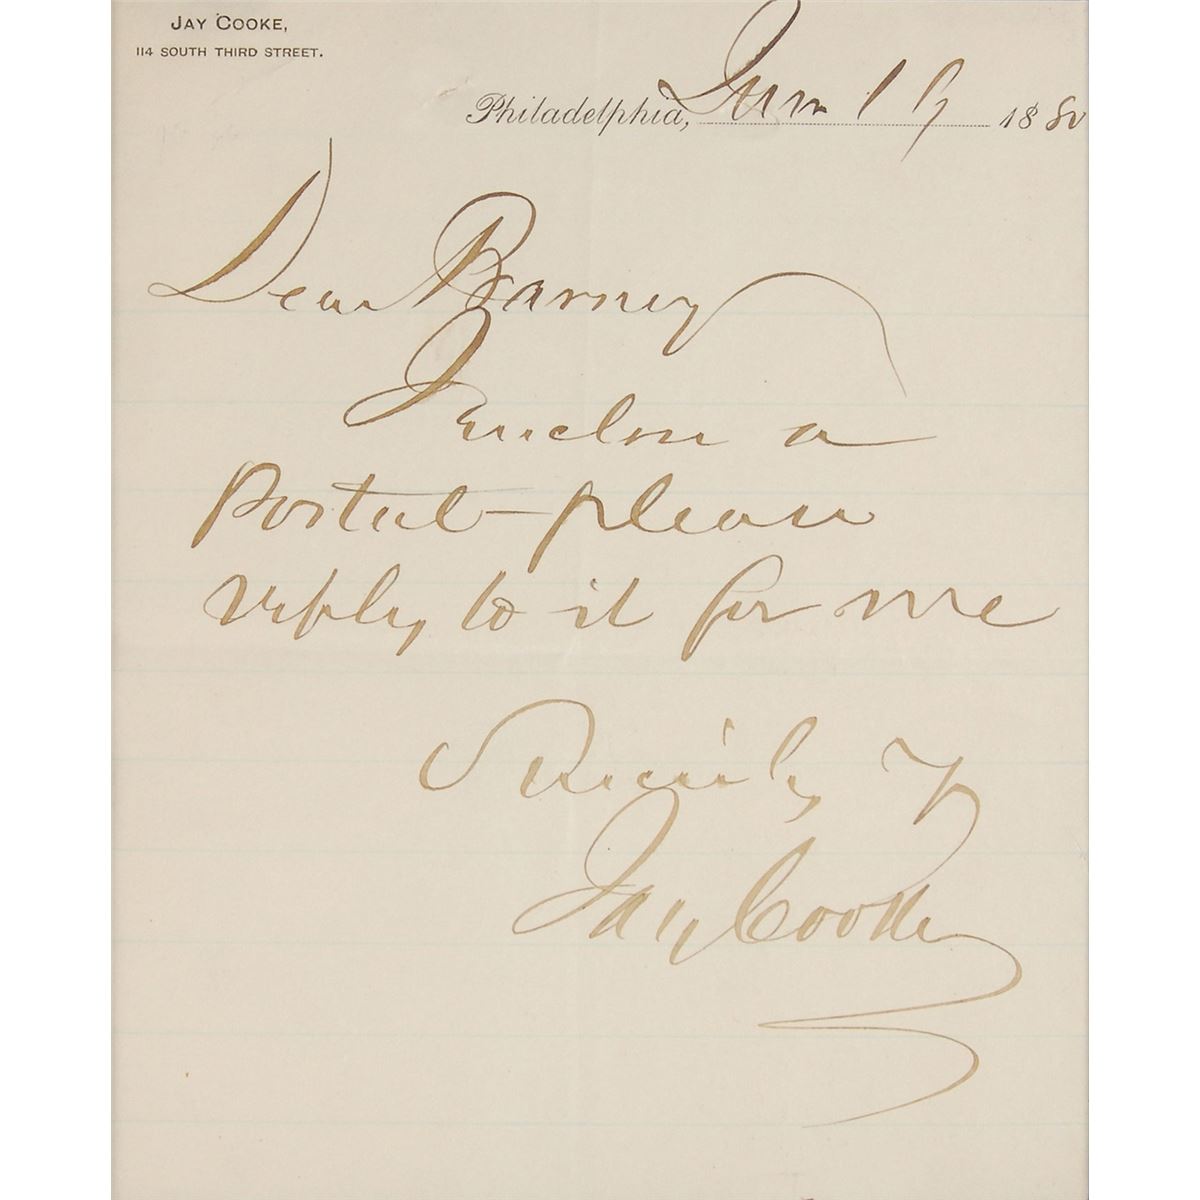 JAY COOKE,
114 SOUTH THIRD STREET.
Philadelphia, 19 1880
Dear Barney
I enclose a
Postal — please
reply to it for me
Sincerely Yr
Jay Cooke